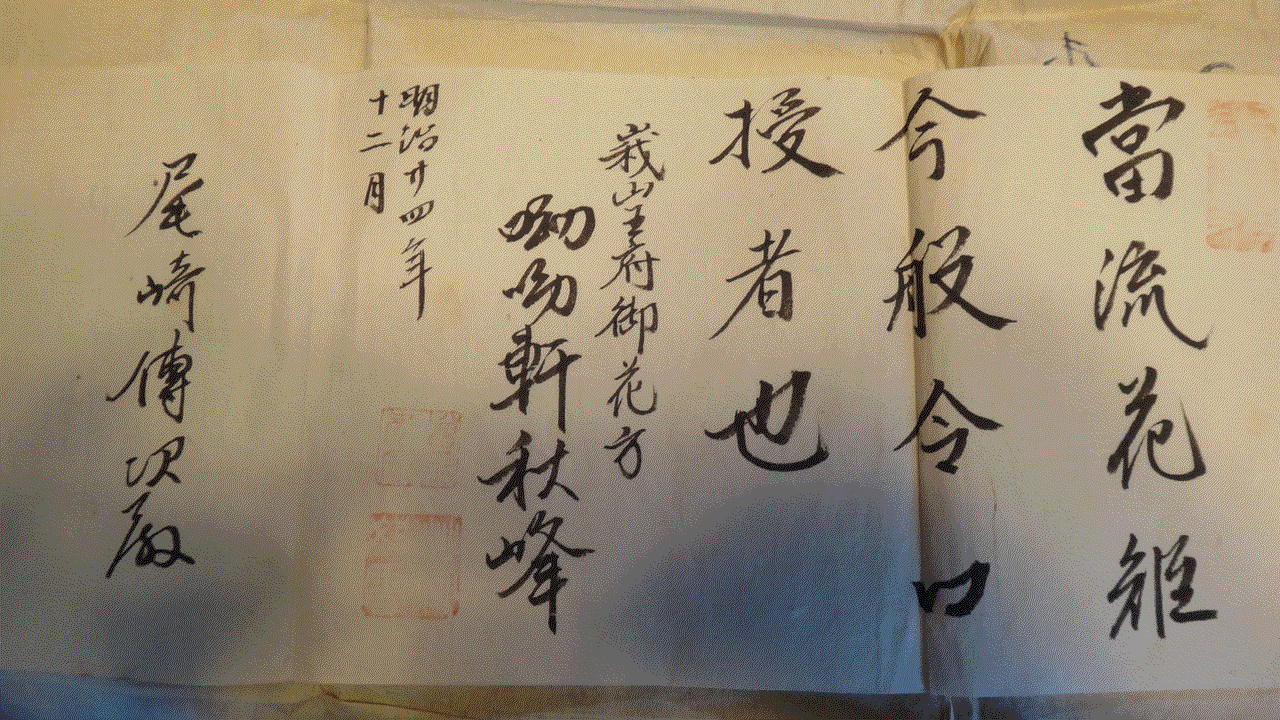 當流花雖
今般令口
授者也
峩皇府御花方
呦呦軒秋峰
明治廿四年
十二月
尾崎傳次殿